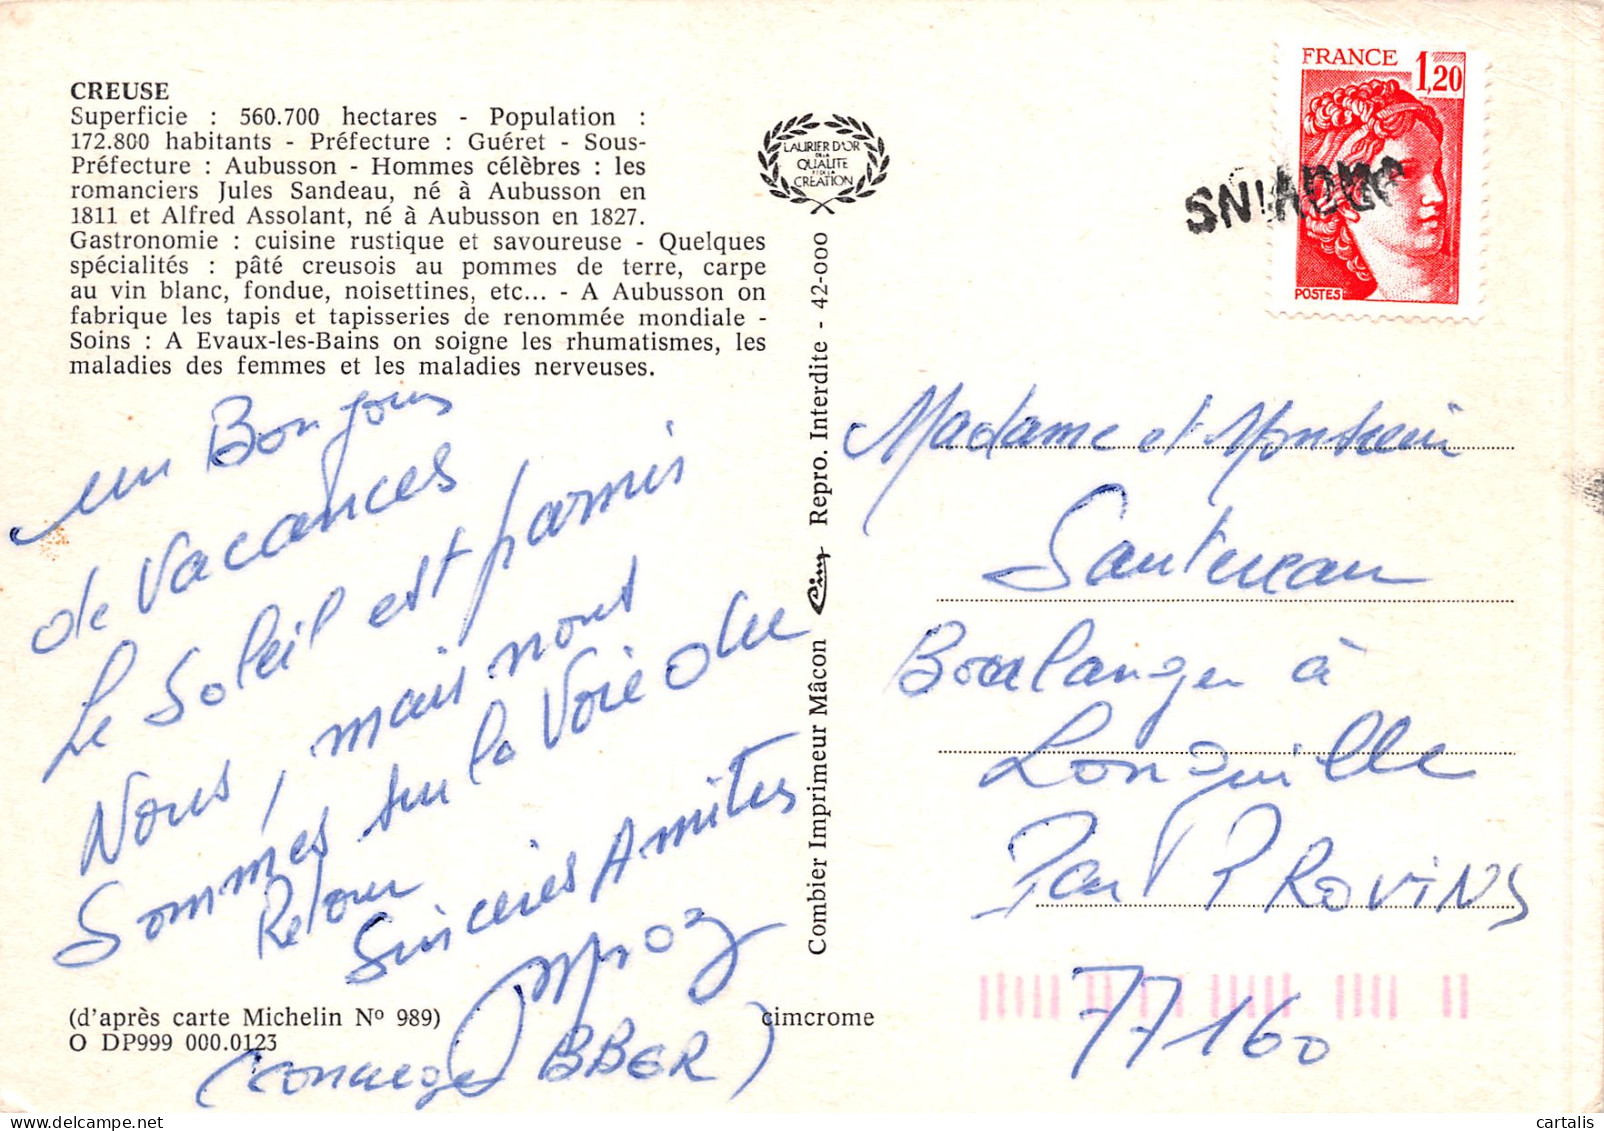 CREUSE
Superficie : 560.700 hectares - Population :
172.800 habitants - Préfecture : Guéret - Sous-
Préfecture : Aubusson - Hommes célèbres : les
romanciers Jules Sandeau, né à Aubusson en
1811 et Alfred Assolant, né à Aubusson en 1827.
Gastronomie : cuisine rustique et savoureuse - Quelques
spécialités : pâté creusois au pommes de terre, carpe
au vin blanc, fondue, noisettines, etc... - A Aubusson on
fabrique les tapis et tapisseries de renommée mondiale -
Soins : A Evaux-les-Bains on soigne les rhumatismes, les
maladies des femmes et les maladies nerveuses.
un Bonjour
de Vacances
Le Soleil est parmis
Nous, mais nous
Sommes sur la Voie du
Retour
Sincères Amitiés
BBER)
(d'après carte Michelin Nº 989)
O DP999 000.0123
cimcrome
LAURIER D'OR
DE LA
QUALITE
ET DE LA
CREATION
Combier Imprimeur Mâcon Cim Repro. Interdite - 42-000
FRANCE 1,20
POSTES
Madame et Monsieur
Boulanger à
Longuille
Par PROVINS
77160
cartalis - delcampe.net